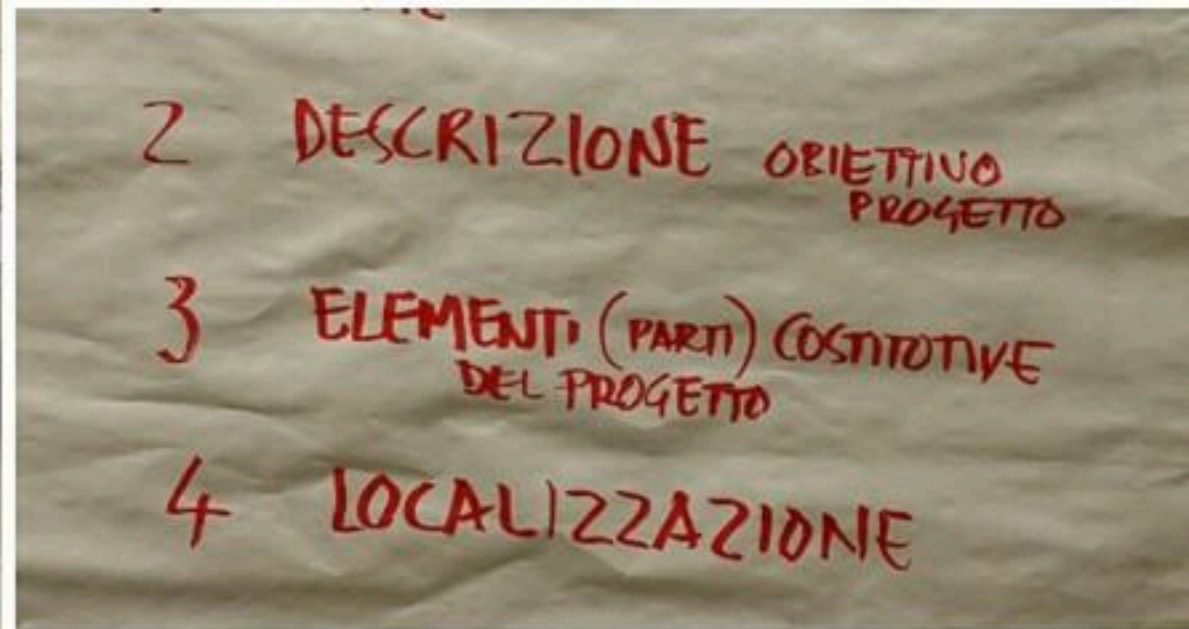 2 DESCRIZIONE OBIETTIVO
PROGETTO
3 ELEMENTI (PARTI) COSTITUTIVE
DEL PROGETTO
4 LOCALIZZAZIONE